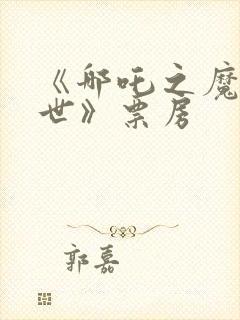 《哪吒之魔
世》票房
郭嘉